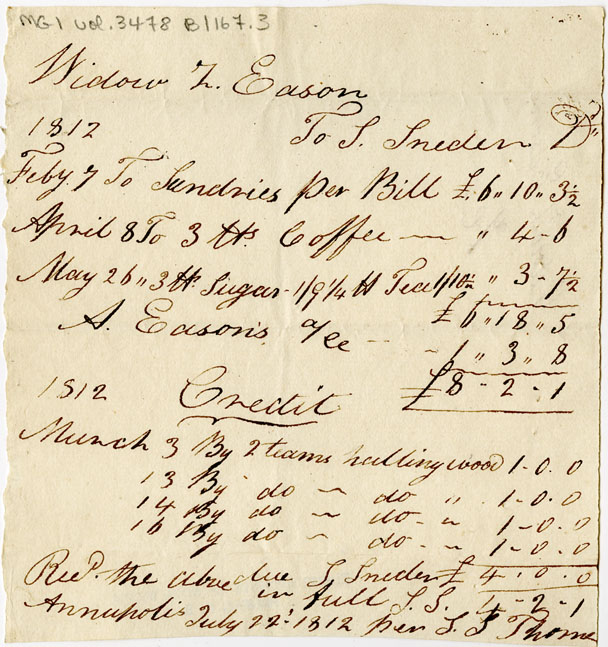 MG1 vol.3478 B1167.3
Widow Z. Eason
1812 To S. Sneden Dr
Feby 7 To Sundries per Bill £6"10"3½
April 8 To 3 lbs Coffee — " 4-6
May 26 " 3 lb Sugar - 1/9 ¼ lb Tea 1/10½ " 3-7½
£6"18"5
A. Easons a/cc - - 1"3"8
£8-2-1
1812 Credit
March 3 By 2 teams halling wood 1-0.0
13 By do ~ do " 1-0.0
14 By do ~ do - " 1-0-0
16 By do ~ do - 1-0-0
Recd. the above due S Sneden £4.0.0
in full S.S. 4-2-1
Annapolis July 22d 1812 per S. S Thorne